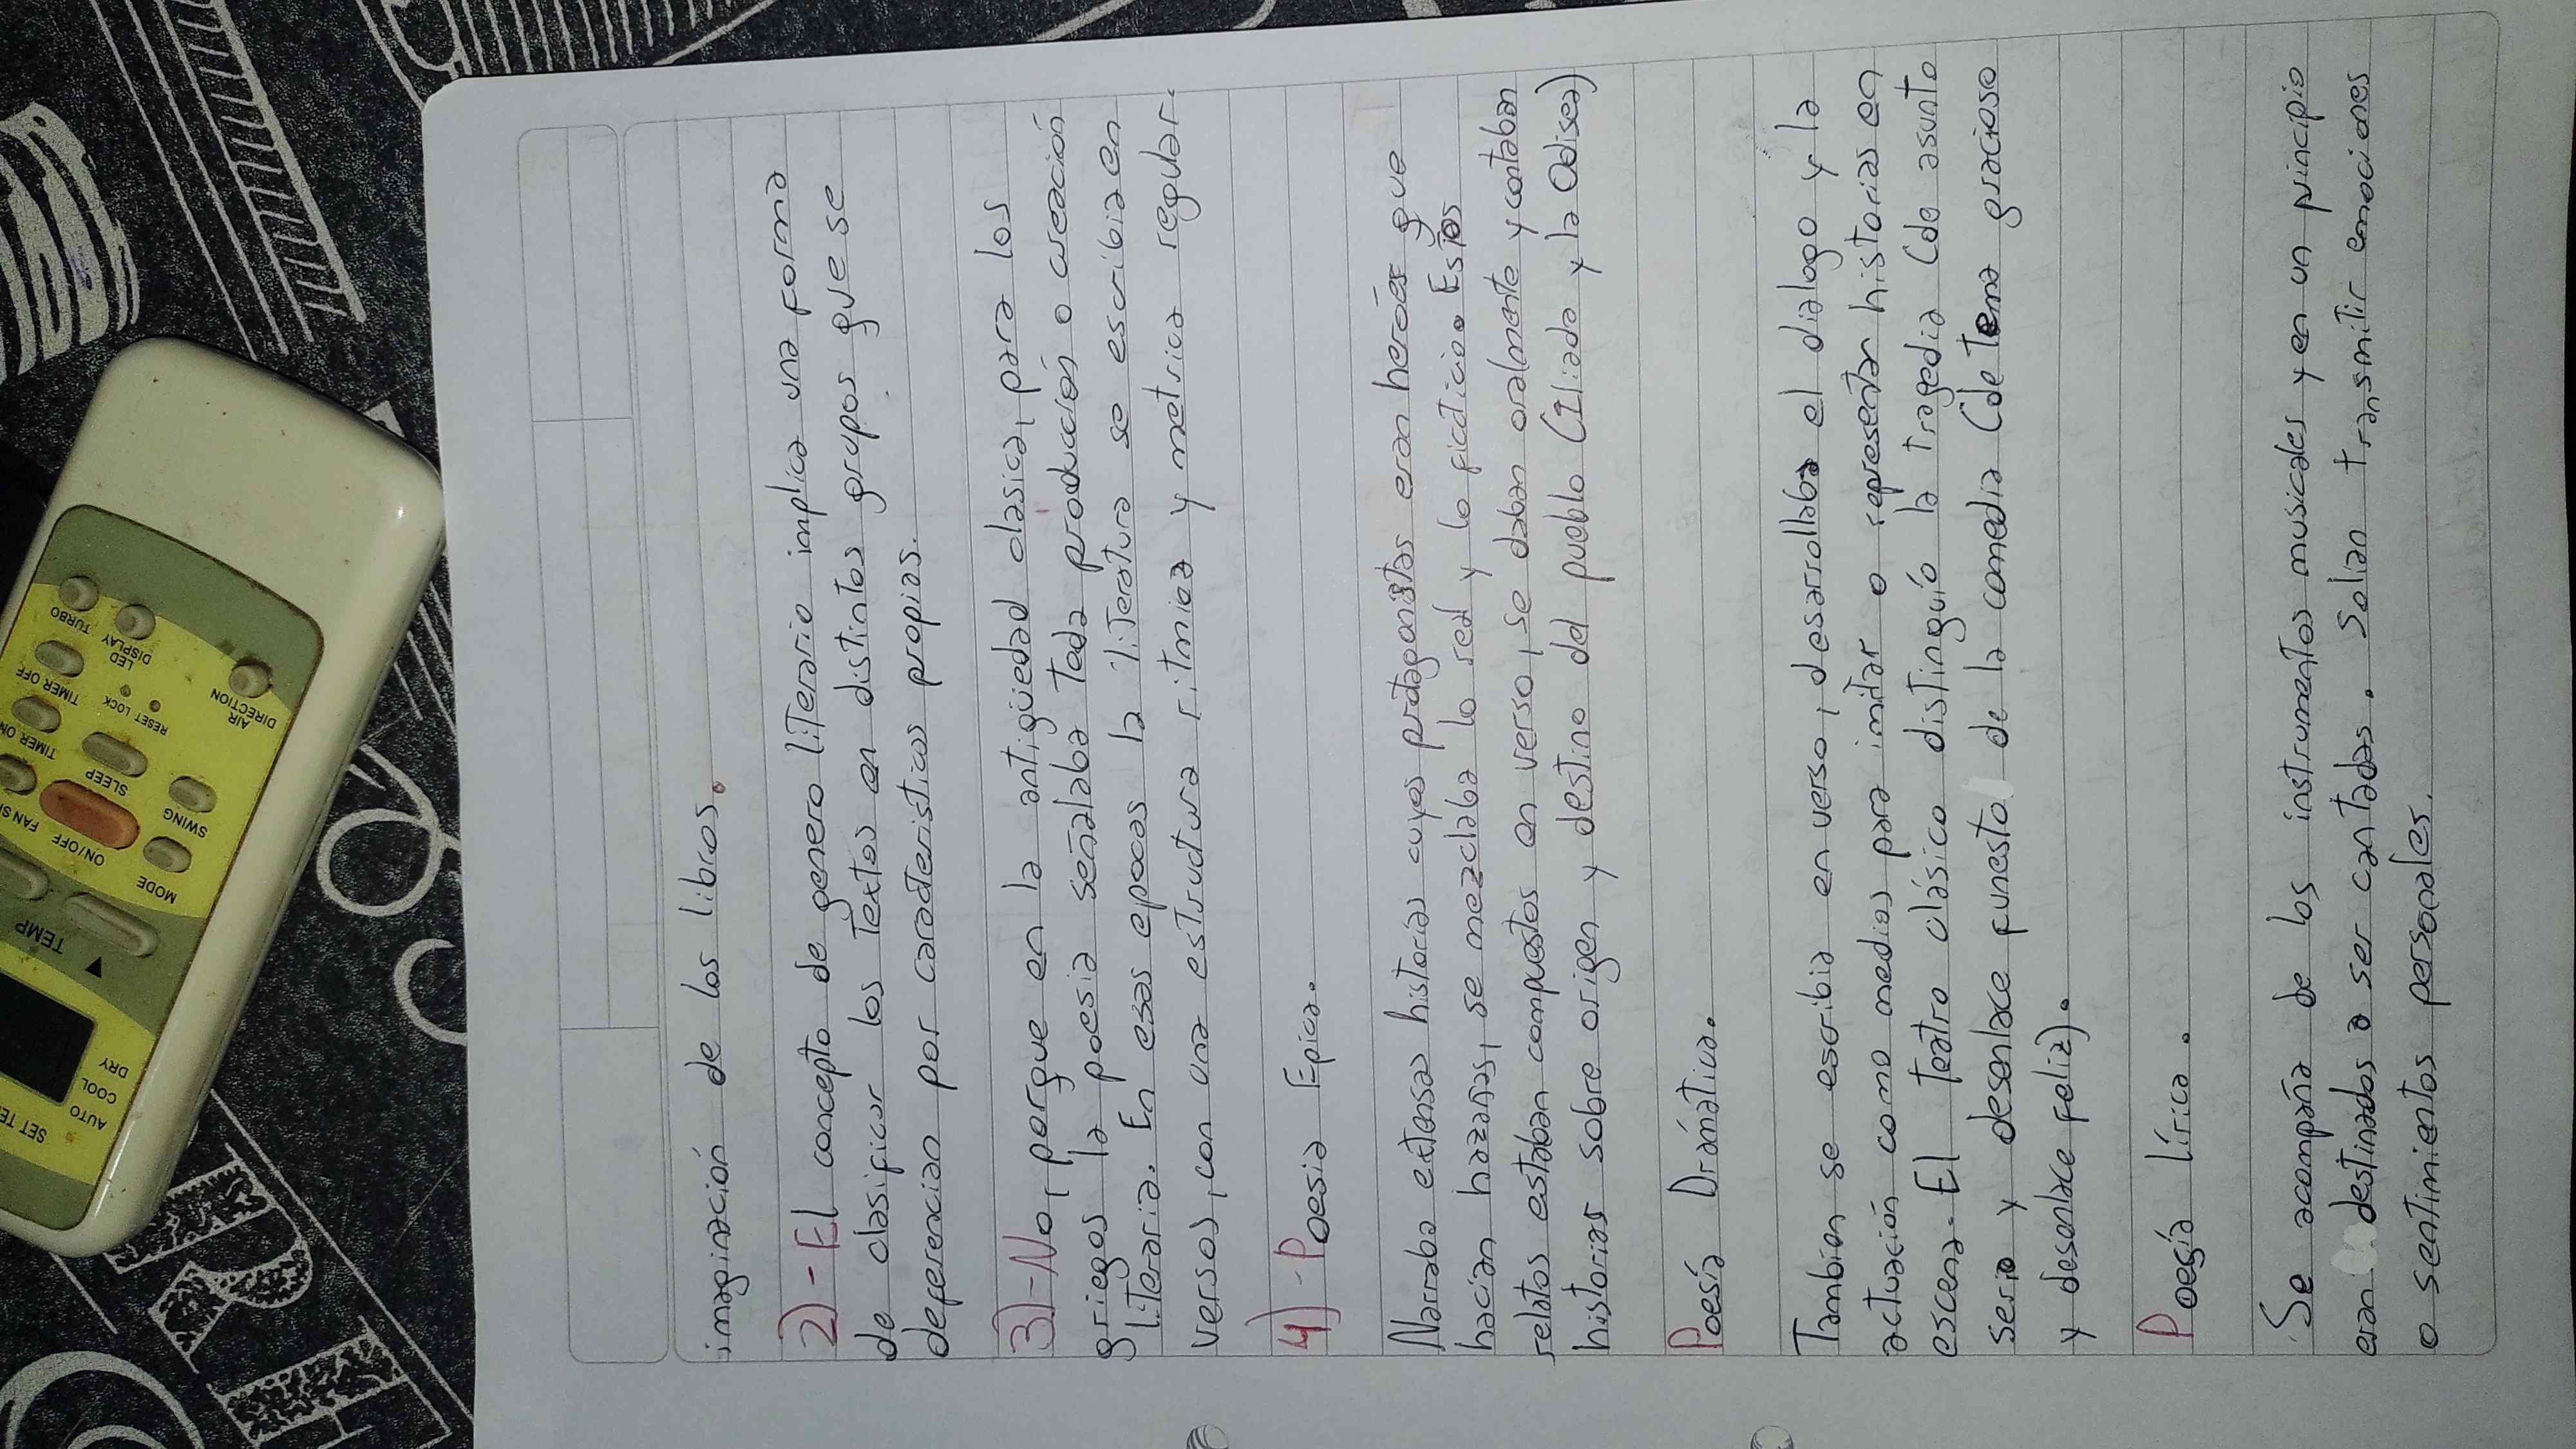 imaginación de los libros.
2)-El concepto de genero literario implica una forma
de clasificar los Textos en distintos grupos que se
deferencian por caracteristicas propias.
3)-No, porque en la antigüedad clasica, para los
griegos la poesia señalaba toda producción o creación
literaria. En esas epocas la literatura se escribia en
versos, con una estructura ritmica y metrica regular.
4)-Poesia Epica.
Narraba extensas historias cuyos protagonistas eran heroés que
hacian hazañas, se mezclaba lo real y lo ficticio. Estos
relatos estaban compuestos en verso, se daban oralmente y contaban
historias sobre origen y destino del pueblo (Iliada y la Odisea)
Poesía Drámatica.
Tambien se escribia en verso, desarrollaba el dialogo y la
actuación como medios para imitar o representar historias en
escena. El teatro clásico distinguío la tragedia (de asunto
serio y desenlace funesto de la comedia (de tema gracioso
y desenlace feliz).
Poesía lírica.
Se acompaña de los instrumentos musicales y en un principio
eran destinados a ser cantadas. Solian transmitir emociones
o sentimientos personales.
SET
AUTO
COOL
DRY
TEMP
MODE
ON/OFF
SWING
SLEEP
TIMER ON
RESET
LOCK
TIMER OFF
AIR
DIRECTION
LED
DISPLAY
TURBO